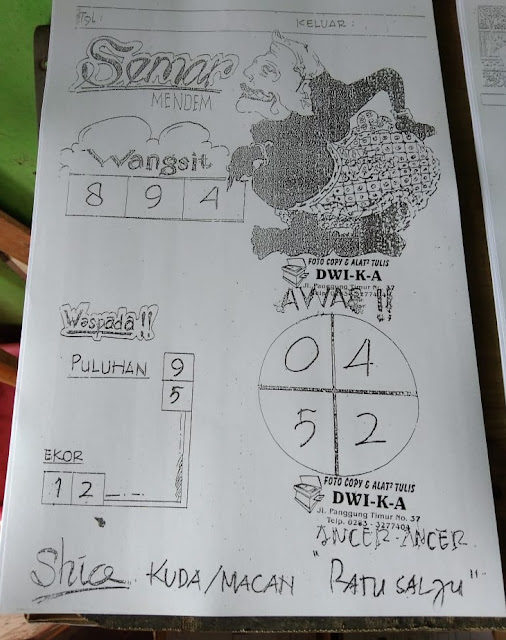 TGL :
KELUAR :
Semar
MENDEM
Wangsit
8 9 4
FOTO COPY & ALAT² TULIS
DWI-K-A
Jl. Panggung Timur No. 37
AWAS !!
Waspada!!
PULUHAN 9
5
0 4
5 2
EKOR
1 2
FOTO COPY & ALAT² TULIS
DWI-K-A
Jl. Panggung Timur No. 37
Telp. 0283 - 3277404
ANCER-ANCER
Shio KUDA/MACAN "BATU SALJU"